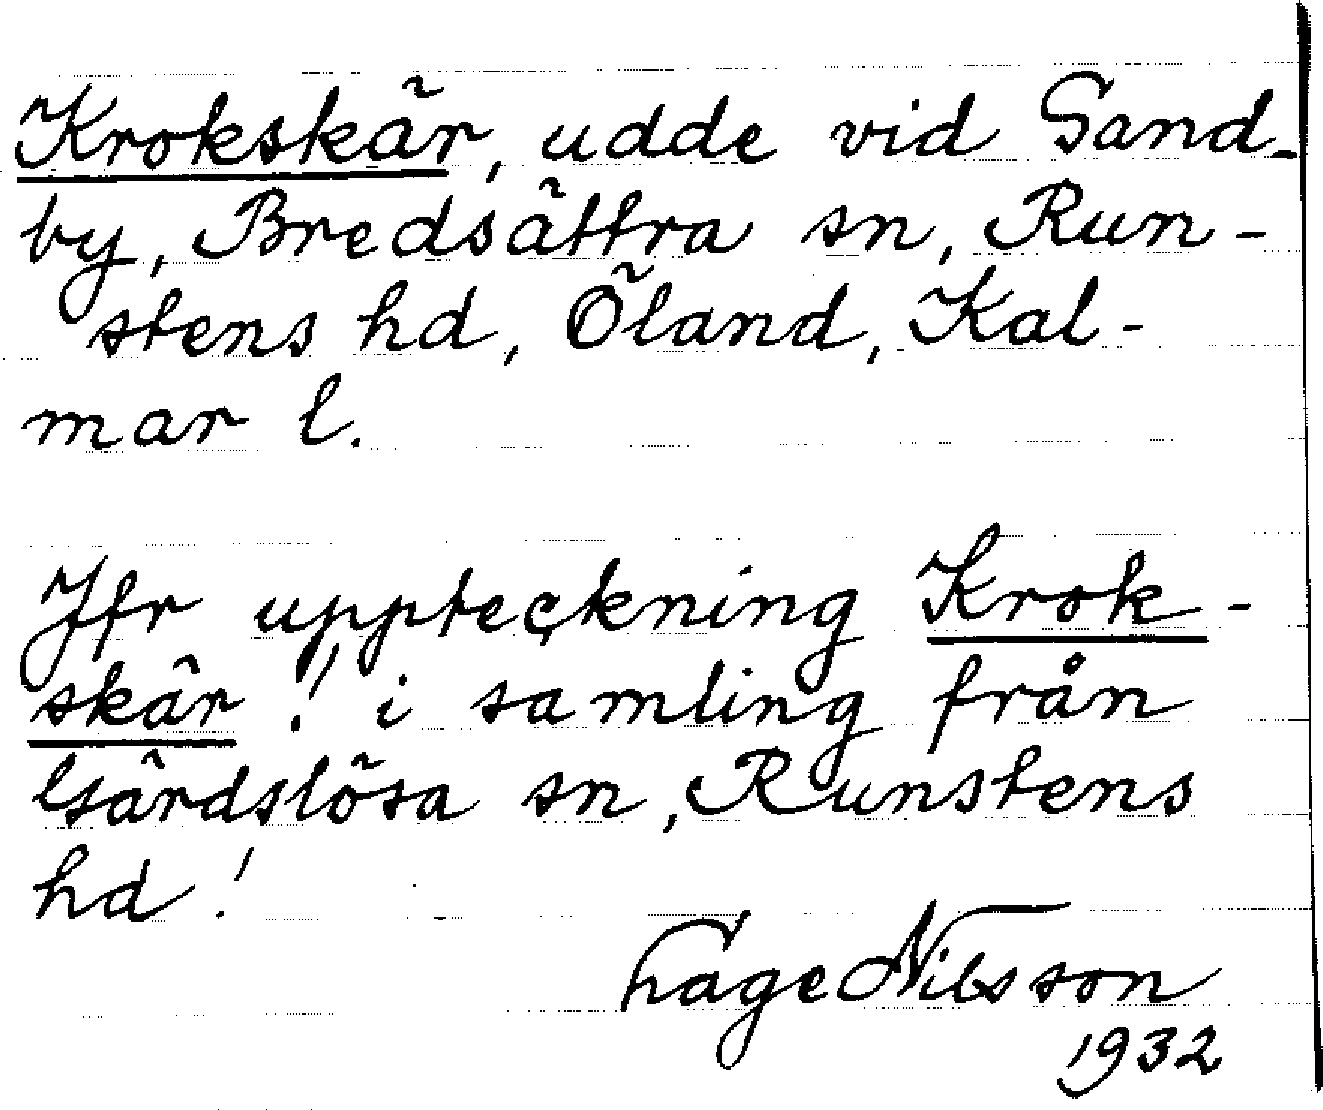 Krokskär, udde vid Sand-
by, Bredsättra sn, Run-
stens hd, Öland, Kal-
mar l.
Jfr uppteckning Krok-
skär! i samling från
Gärdslösa sn, Runstens
hd!
Hage Nilsson
1932